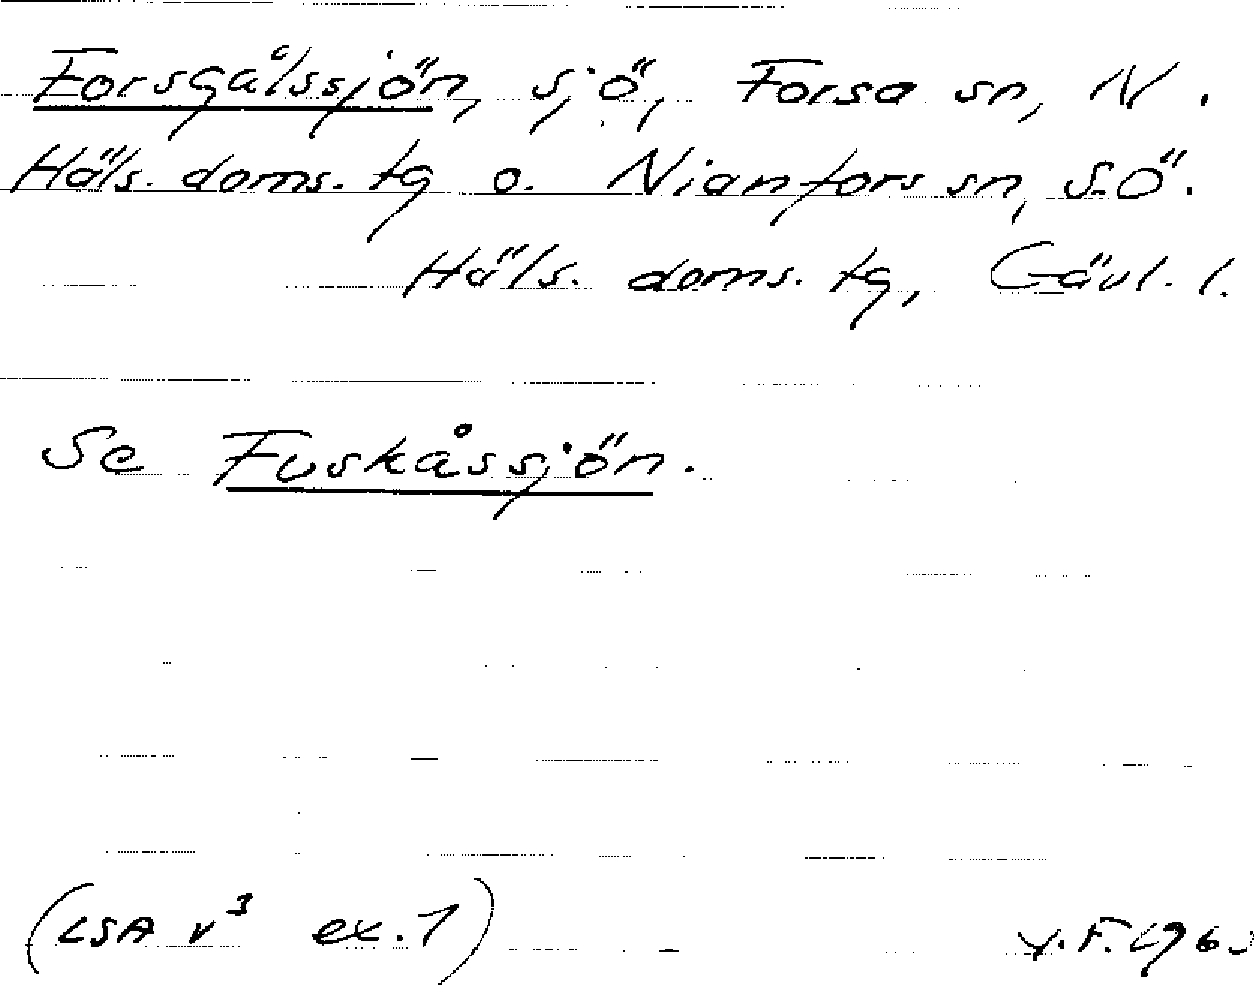 Forsgålssjön, sjö, Forsa sn, N.
Häls. doms. tg o. Nianfors sn, S.Ö.
Häls. doms. tg, Gävl. l.
Se Fuskåssjön.
(LSA v³ ex. 1)